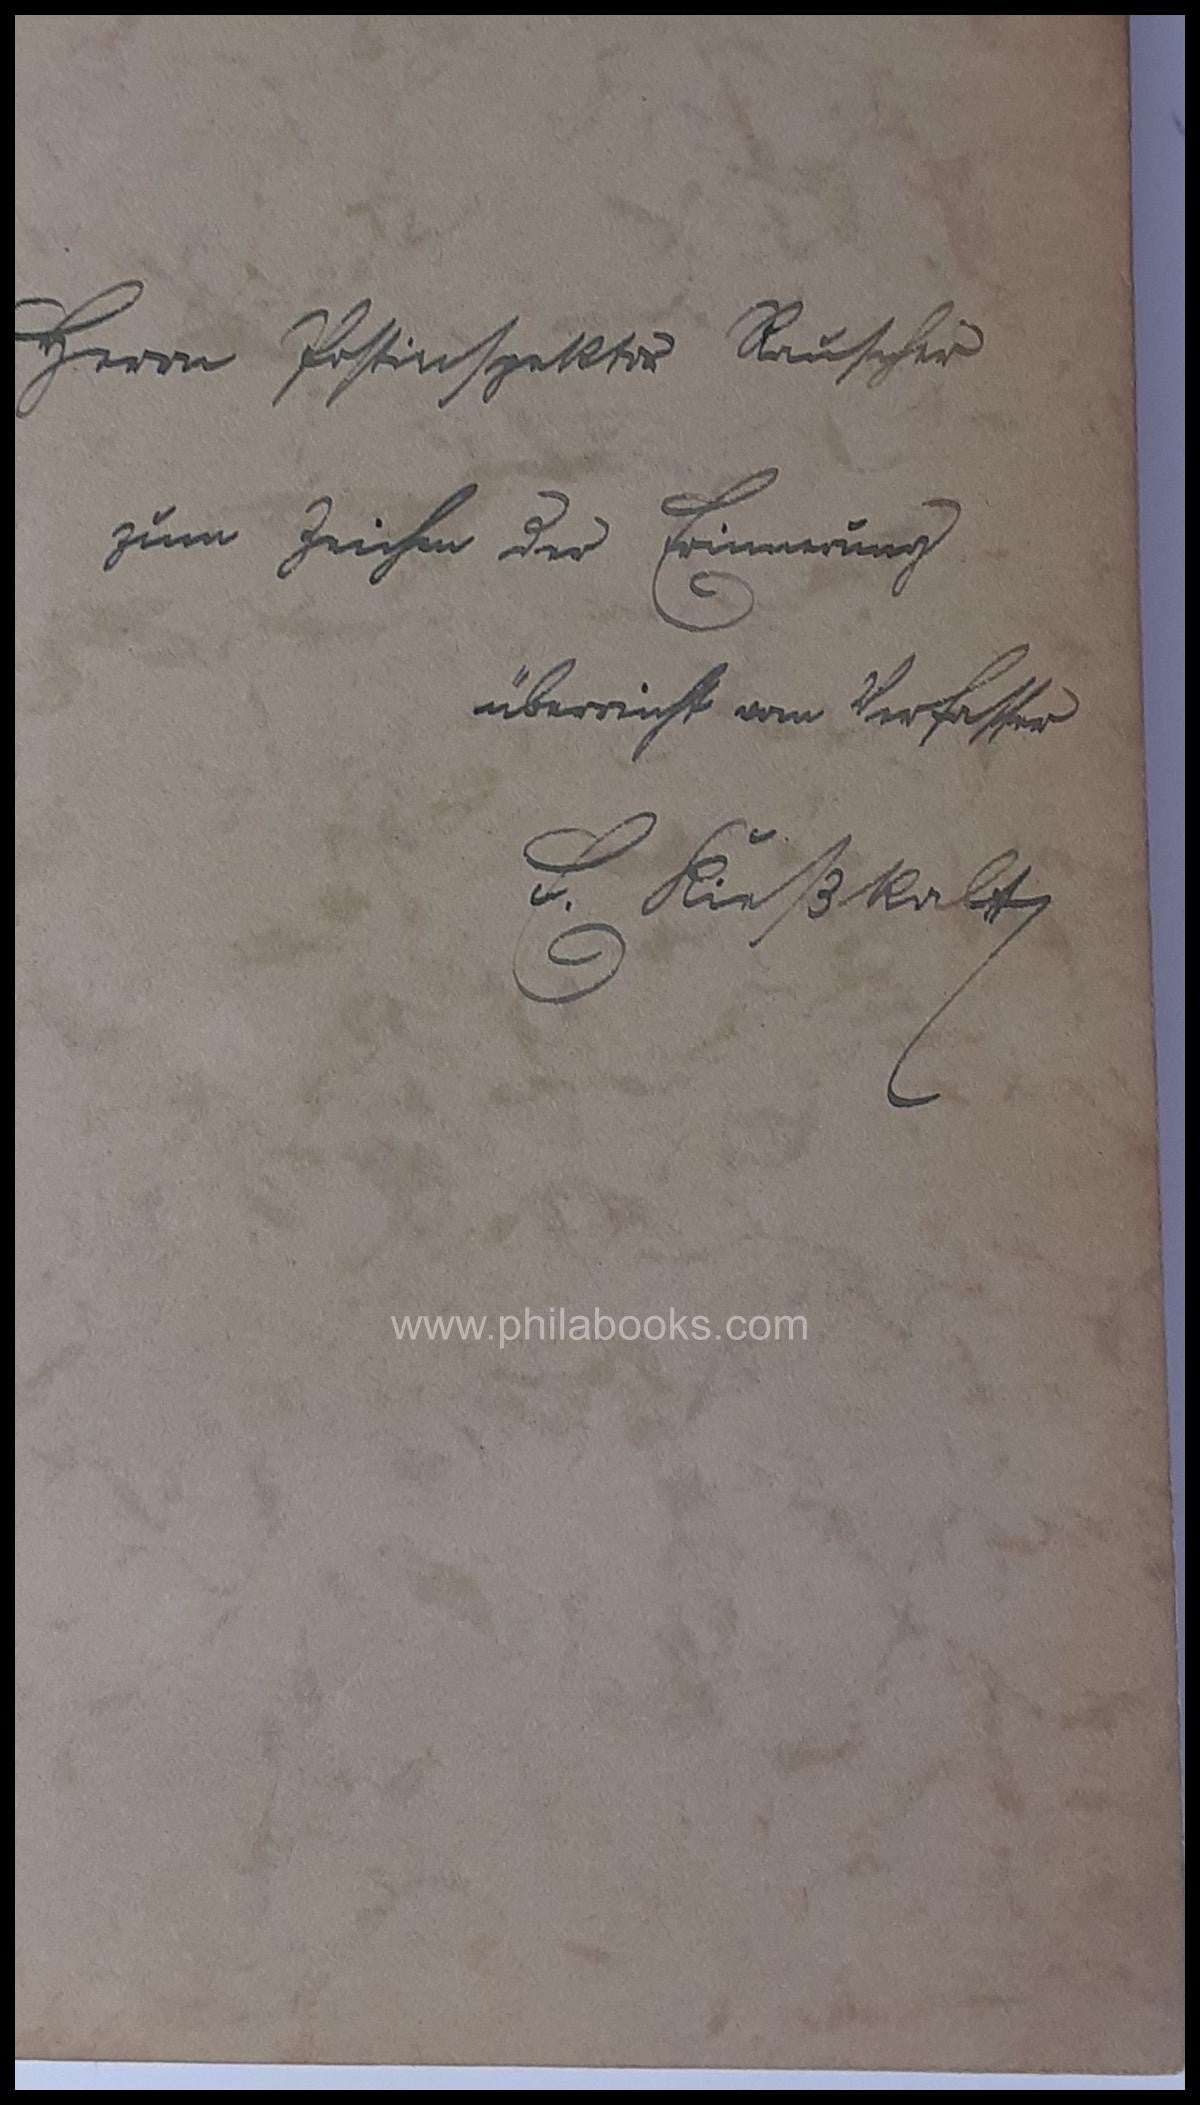 Herrn Postinspektor Rauscher
zum Zeichen der Erinnerung
überreicht vom Verfasser
E. Kießkalt
www.philabooks.com